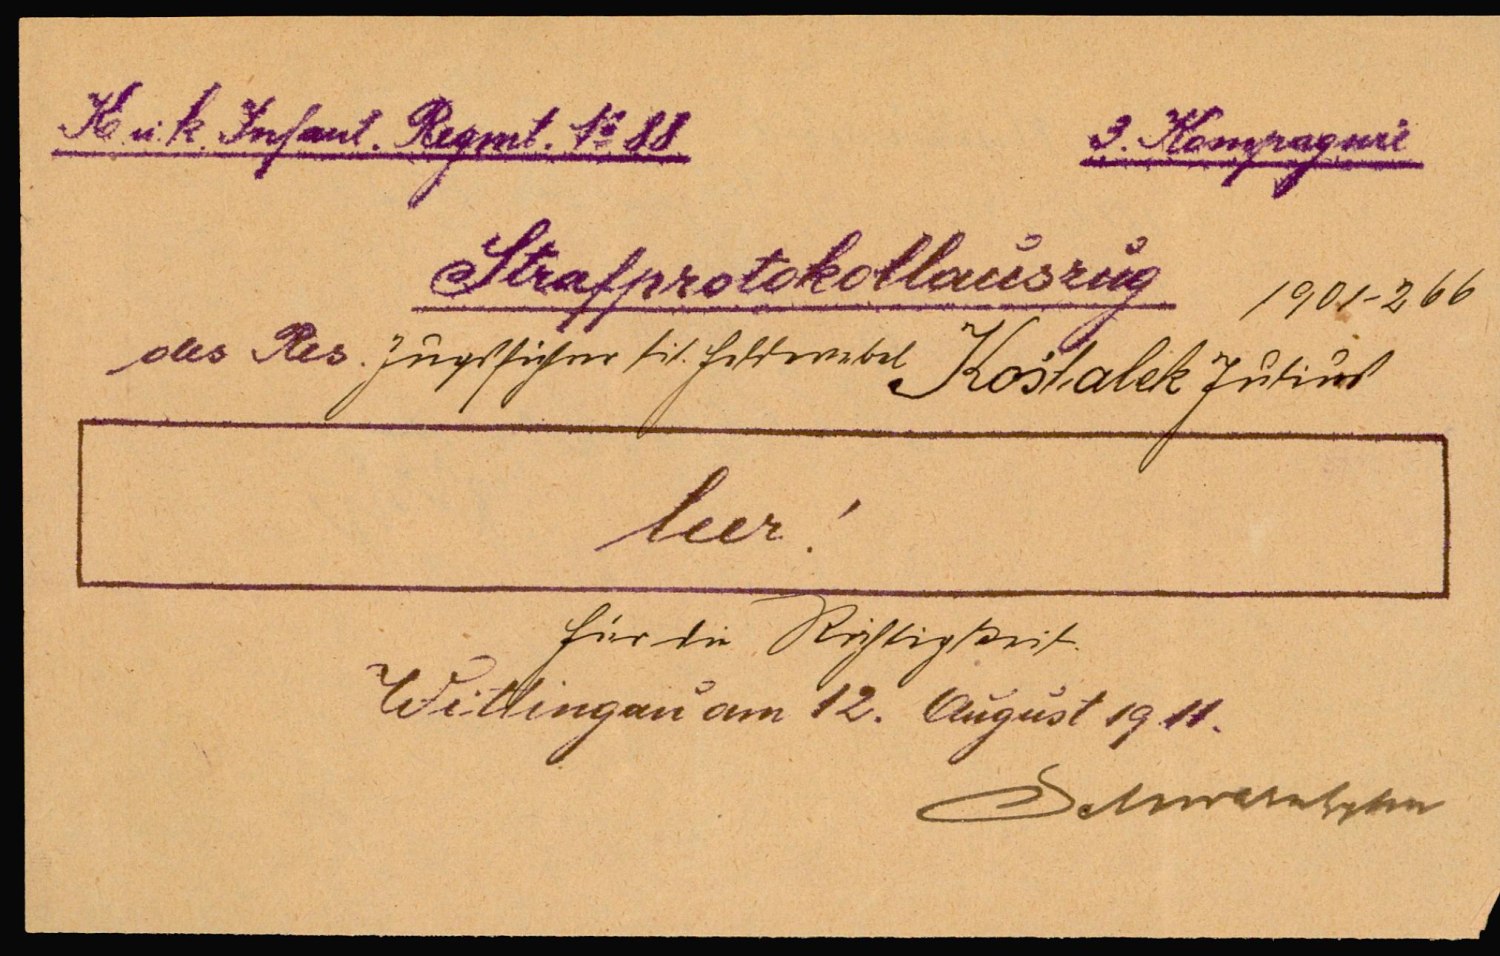 K. u. k. Infant. Regmt. № 88
3. Kompagnie
Strafprotokollauszug
1901-266
des Res. Zugsführer tit. Feldwebel Košťalek Julius
leer!
Für die Richtigkeit.
Wittingau am 12. August 1911.